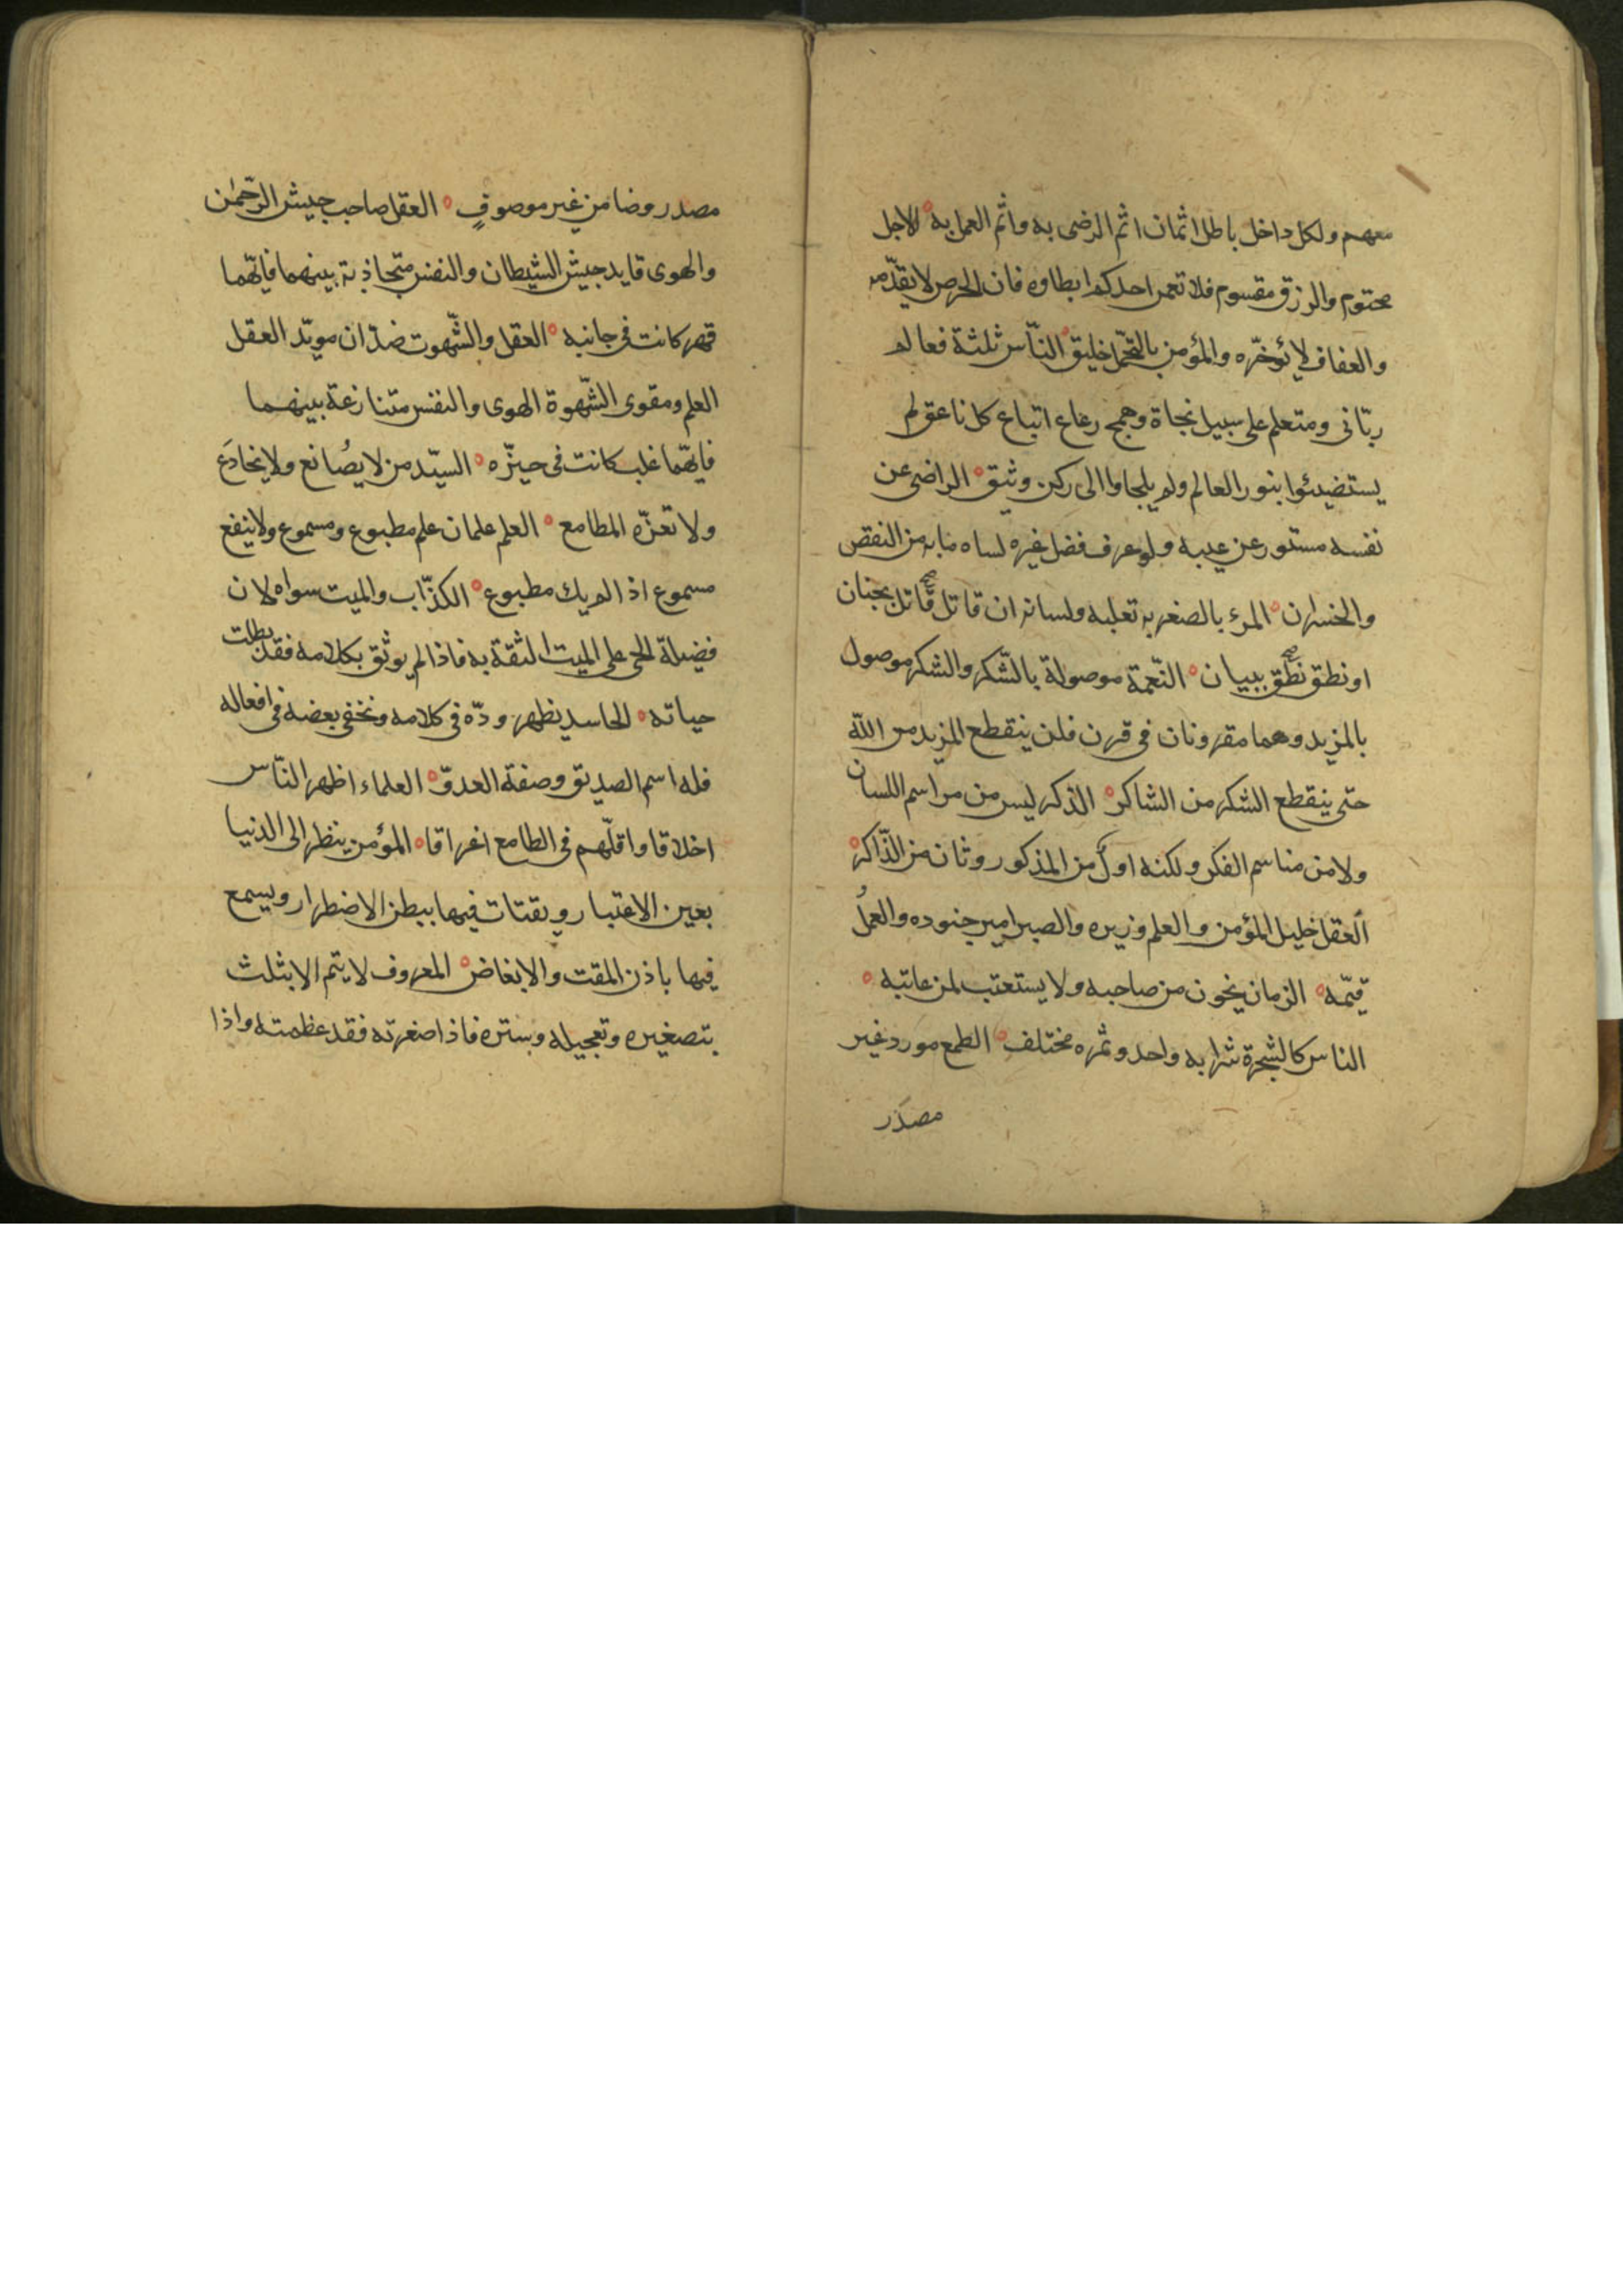 معهم ولكل داخل باطل اثمان اثم الرضى به واثم العمل به ه الاجل
محتوم والرزق مقسوم فلا تعمر احدكم ابطاوه فان الحرص لا يقدّمه
والعفاف لا يؤخّره والمؤمن بالتحمّل خليق ه النّاس ثلثة فعالم
ربّانى ومتعلم على سبيل نجاة وهمج رعاع اتباع كل ناعق لم
يستضيئوا بنور العالم ولم يلجاوا الى ركن وثيق ه الراضى عن
نفسه مستور عن عيبه ولو عرف فضل غيره لساه مابه من النقص
والخسران ه المرء بالصغريه تعلبه ولسانه ان قاتل قاتل بجنان
او نطق نطق ببيان ه النّعمة موصولة بالشّكر والشكر موصول
بالمزيد وهما مقرونان فى قرن فلن ينقطع المزيد من اللّه
حتى ينقطع الشكر من الشاكر ه الذكر ليس من مراسم اللسان
ولا من مناسم الفكر ولكنه اول من المذكور وثان من الذّاكر ه
العقل خليل المؤمن والعلم وزيره والصبر امير جنوده والعمل
قيّمه ه الزمان يخون من صاحبه ولا يستعتب لمن عاتبه ه
الناس كالشجرة شرابه واحد وثمره مختلف ه الطمع مورد غير
مصدر
مصدر وضامن غير موصوفٍ ه العقل صاحب جيش الرّحمٰن
والهوى قايد جيش الشيطان والنفس متجاذبة بينهما فايّهما
قهر كانت فى جانبه ه العقل والشّهوت ضدّان مويّد العقل
العلم ومقوى الشّهوة الهوى والنفس متنازعة بينهما
فايّهما غلب كانت فى حيزّه ه السيّد من لا يصُانع ولا يخادَع
ولا تغرّه المطامع ه العلم علمان علم مطبوع ومسموع ولا ينفع
مسموع اذا لم يك مطبوع ه الكذّاب والميت سواه لان
فضيلة الحى على الميت الثقة به فاذا لم يوثق بكلامه فقد بطلت
حياته ه الحاسد يظهر ودّه فى كلامه ونخفى بعضه فى افعاله
فله اسم الصديق وصفة العدوّ ه العلماء اظهر النّاس
اخلاقا واقلّهم فى الطامع اغراقا ه المؤمن ينظر الى الدنيا
بعين الاعتبار ويقتات فيها ببطن الاضطرار ويسمع
فيها باذن المقت والابغاض ه المعروف لا يتم الا بثلث
بتصغيره وتعجيله وستره فاذا صغرته فقد عظمته واذا